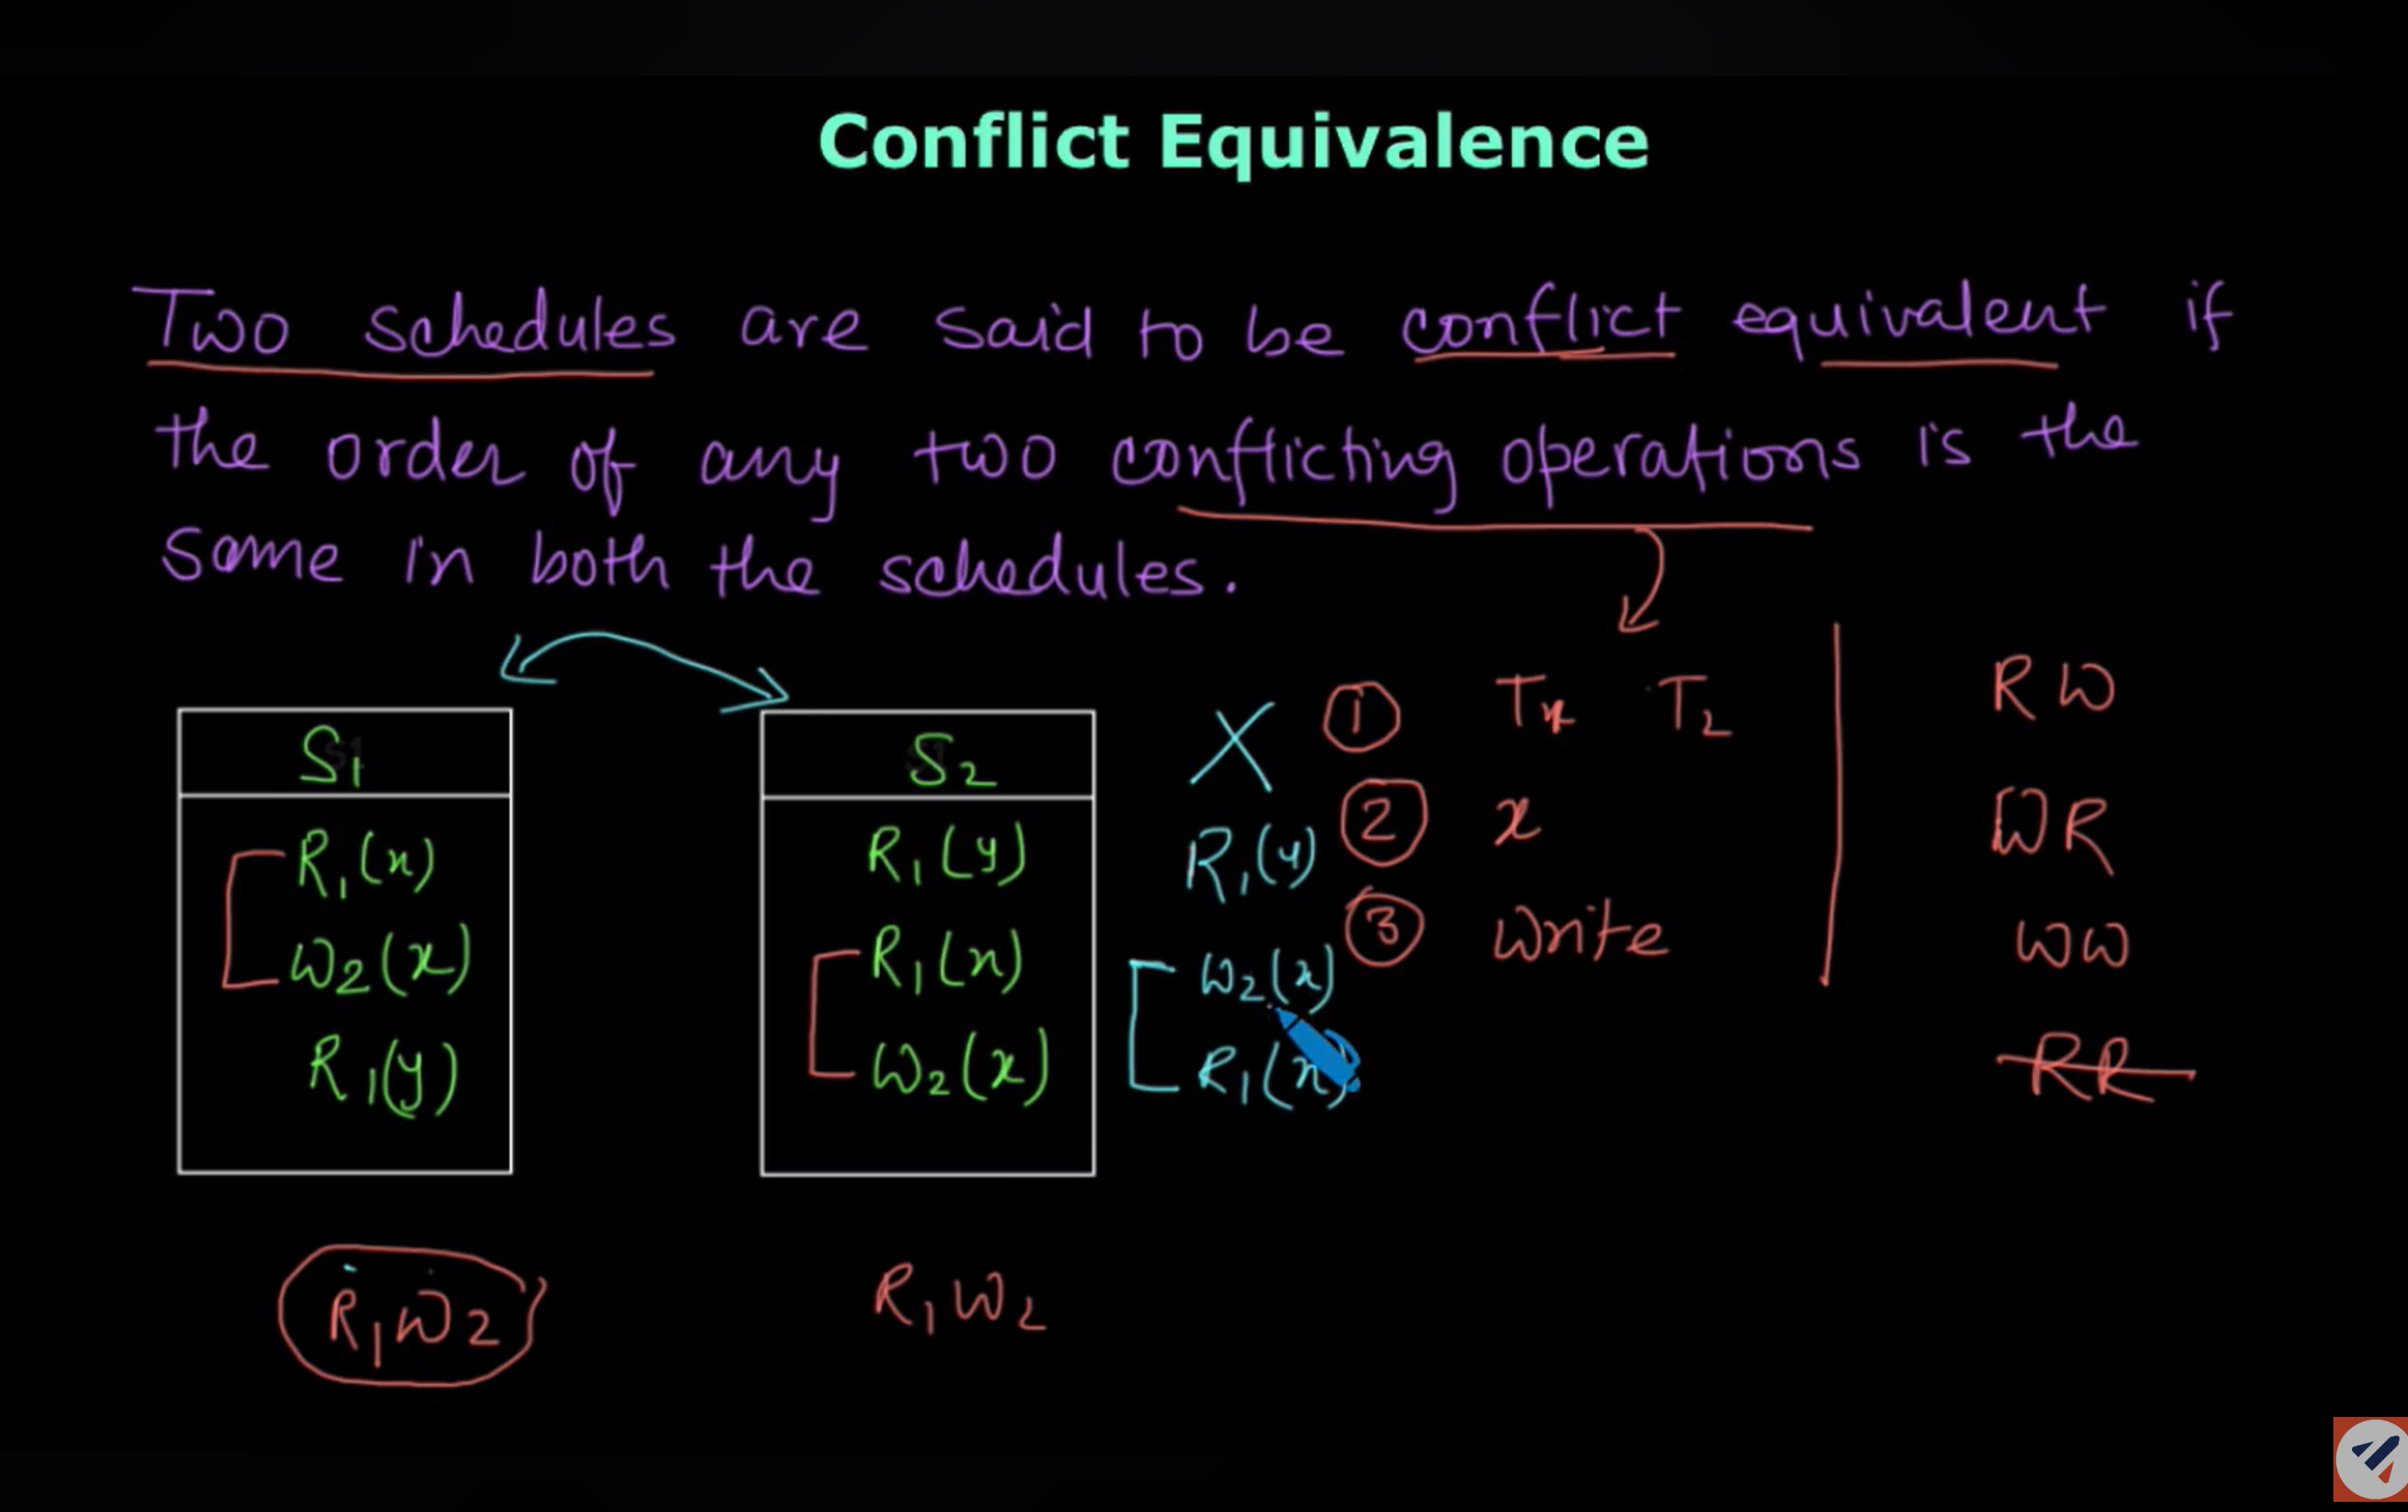 Conflict Equivalence
Two schedules are said to be conflict equivalent if
the order of any two conflicting operations is the
same in both the schedules.
S1
R1(x)
W2(x)
R1(y)
R1W2
S2
R1(y)
R1(x)
W2(x)
R1W2
X
R1(y)
W2(x)
R1(x)
① T1 T2
② x
③ Write
RW
WR
WW
RR